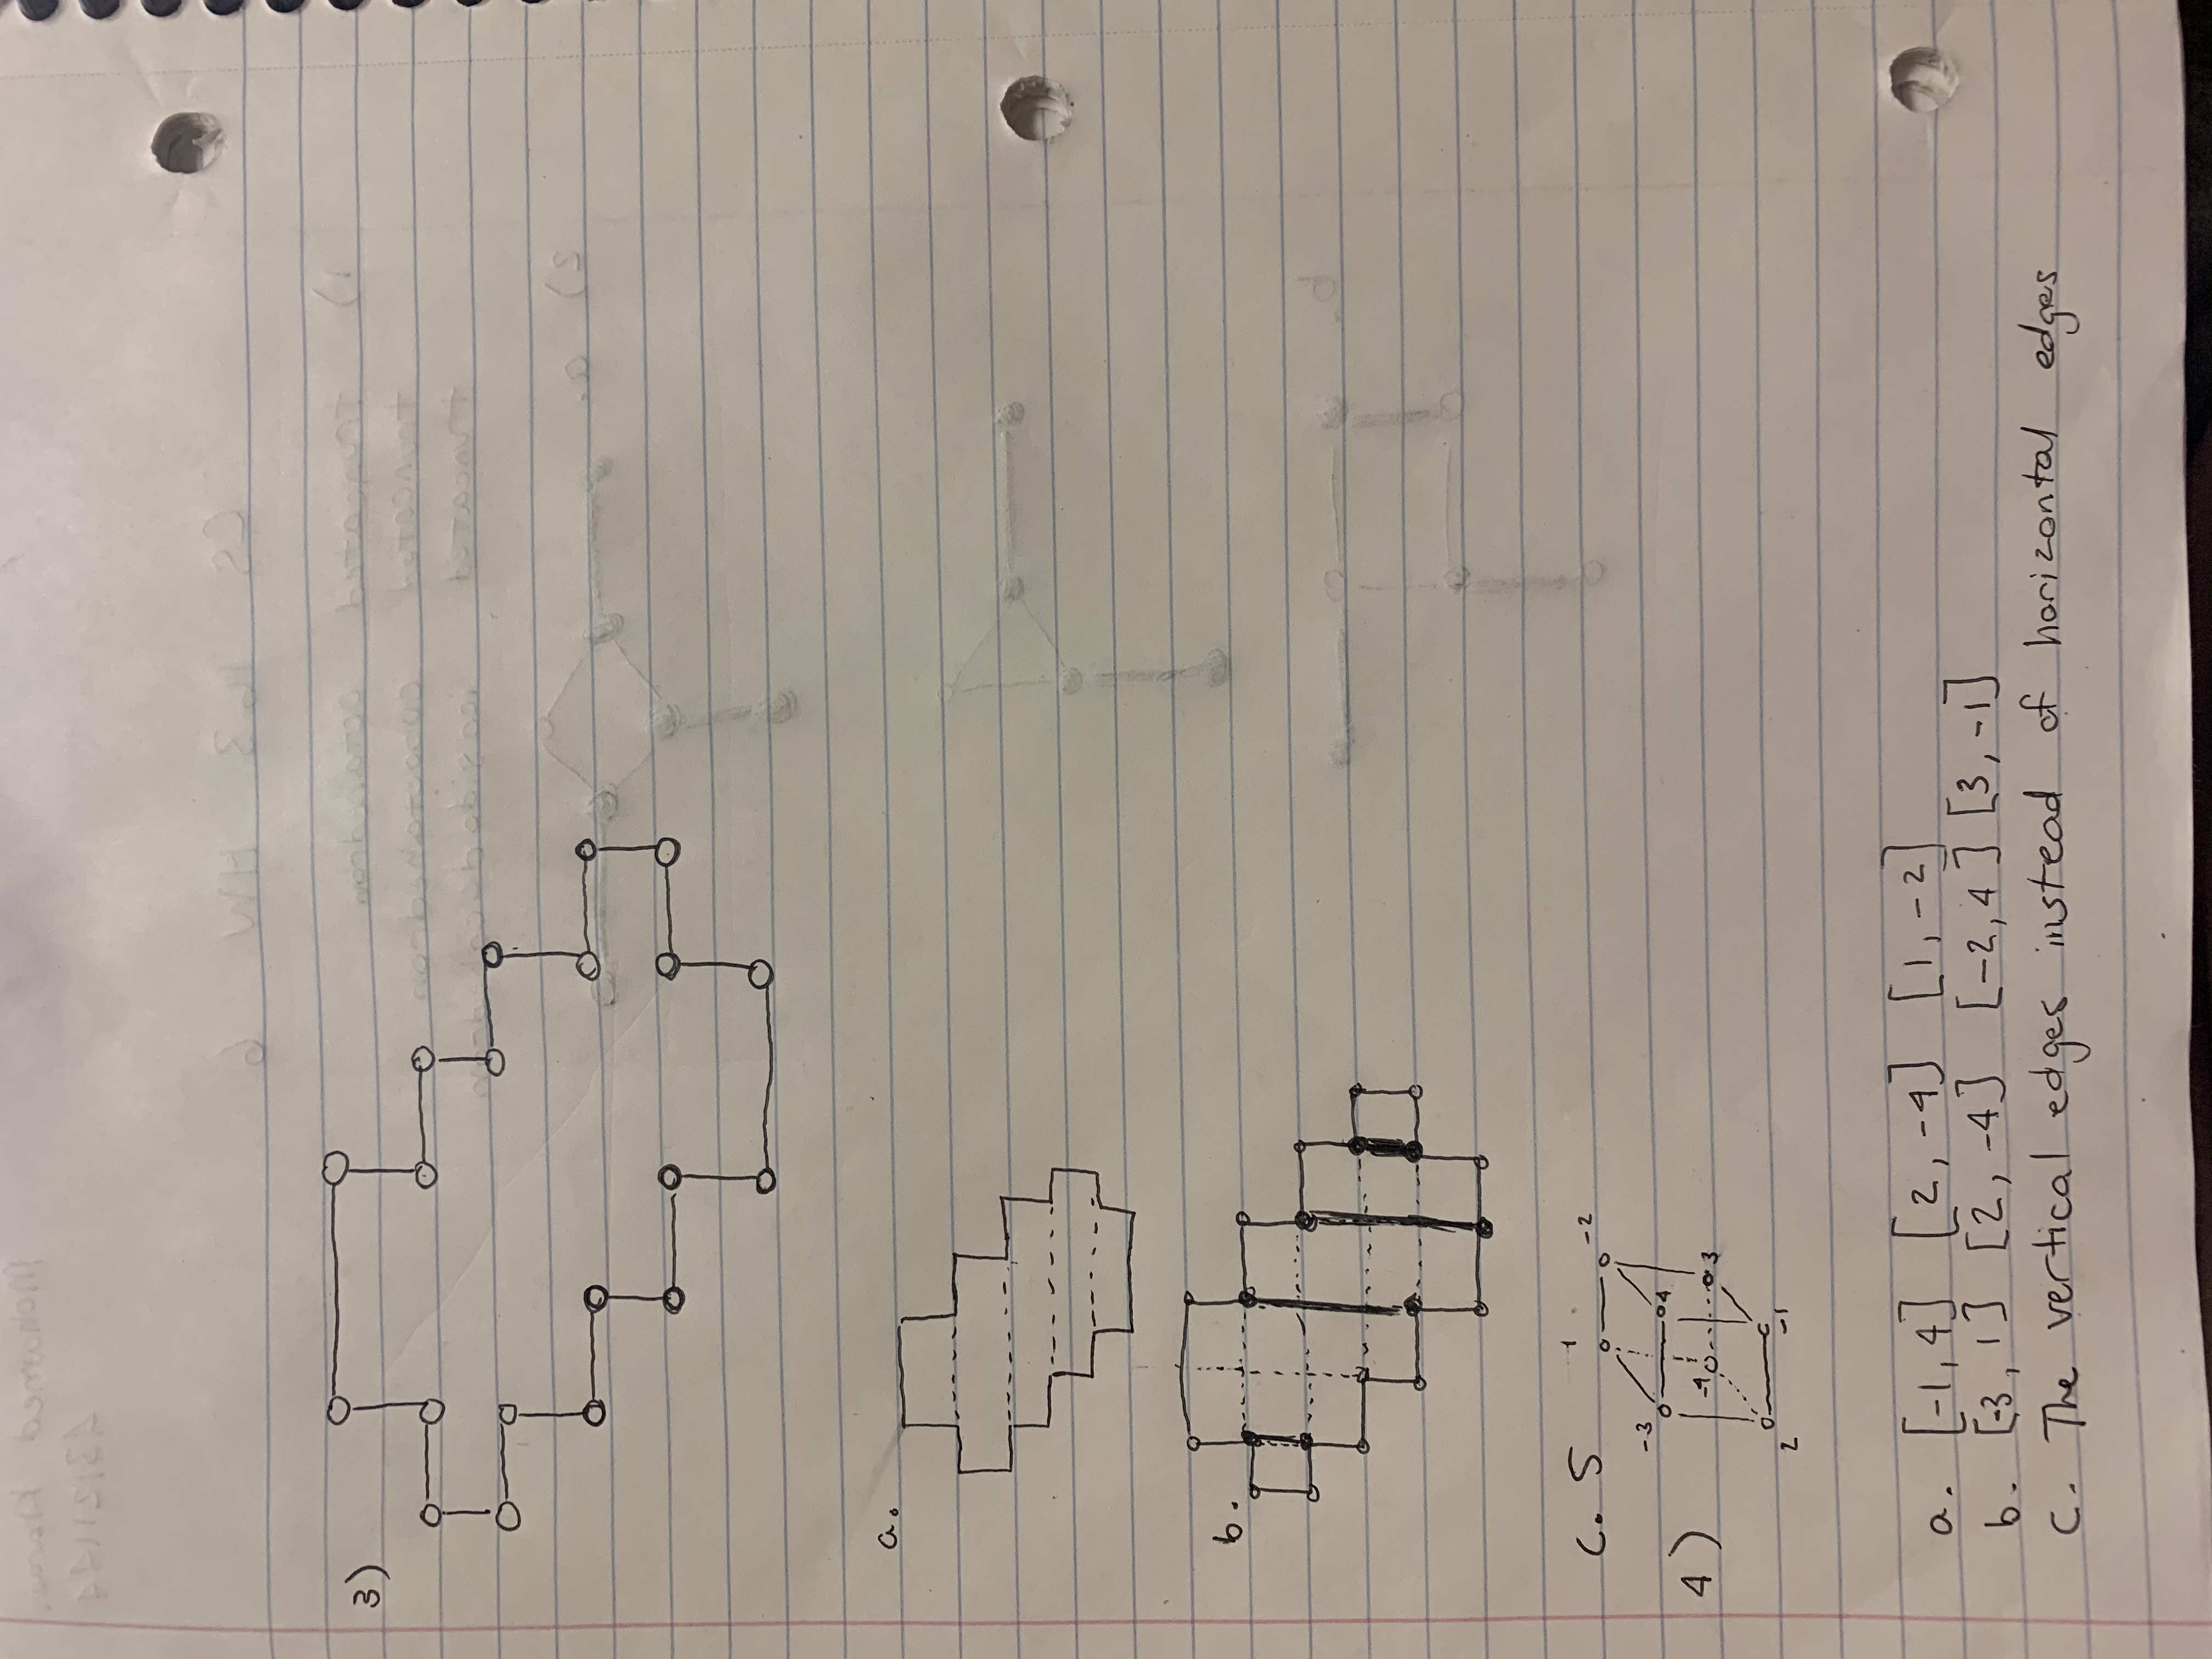 3)
a.
b.
c. 5
1 -2
-3 4
4) -4 3
2 -1
a. [-1, 4] [2, -4] [1, -2]
b. [-3, 1] [2, -4] [-2, 4] [3, -1]
c. The vertical edges instead of horizontal edges